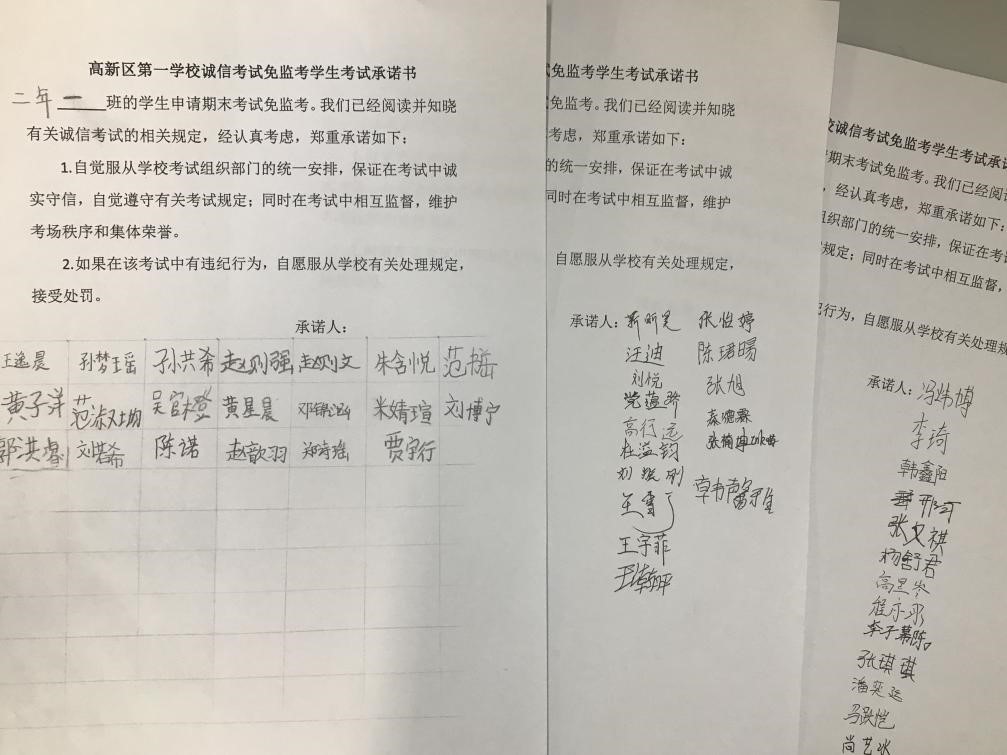 高新区第一学校诚信考试免监考学生考试承诺书
二年一班的学生申请期末考试免监考。我们已经阅读并知晓
有关诚信考试的相关规定，经认真考虑，郑重承诺如下：
1.自觉服从学校考试组织部门的统一安排，保证在考试中诚
实守信，自觉遵守有关考试规定；同时在考试中相互监督，维护
考场秩序和集体荣誉。
2.如果在该考试中有违纪行为，自愿服从学校有关处理规定，
接受处罚。
承诺人：
王逸晨 孙梦瑶 孙洪希 赵则强 赵则文 朱含悦 范瑶
黄子洋 范淑均 吴官橙 黄星晨 米婧瑄 刘博宁
郭洪睿 刘若希 陈诺 赵歆羽 郑诗瑶 贾宇行
式免监考学生考试承诺书
免监考。我们已经阅读并知晓
考虑，郑重承诺如下：
的统一安排，保证在考试中诚
同时在考试中相互监督，维护
自愿服从学校有关处理规定，
承诺人：靳昕昊 张恺婷
汪迪 陈珺暘
刘悦 张旭
党蕴骄
高行远
杜益钧
王雪
王宇菲
校诚信考试免监考学生考试承诺
期末考试免监考。我们已经阅读
，经认真考虑，郑重承诺如下：
组织部门的统一安排，保证在考
规定；同时在考试中相互监督，
纪行为，自愿服从学校有关处理规
承诺人：冯炜博
李琦
韩鑫阳
张文祺
杨舒君
高昱岑
程亦永
李子慕陈
张琪琪
潘奕廷
马跃恺
尚艺冰